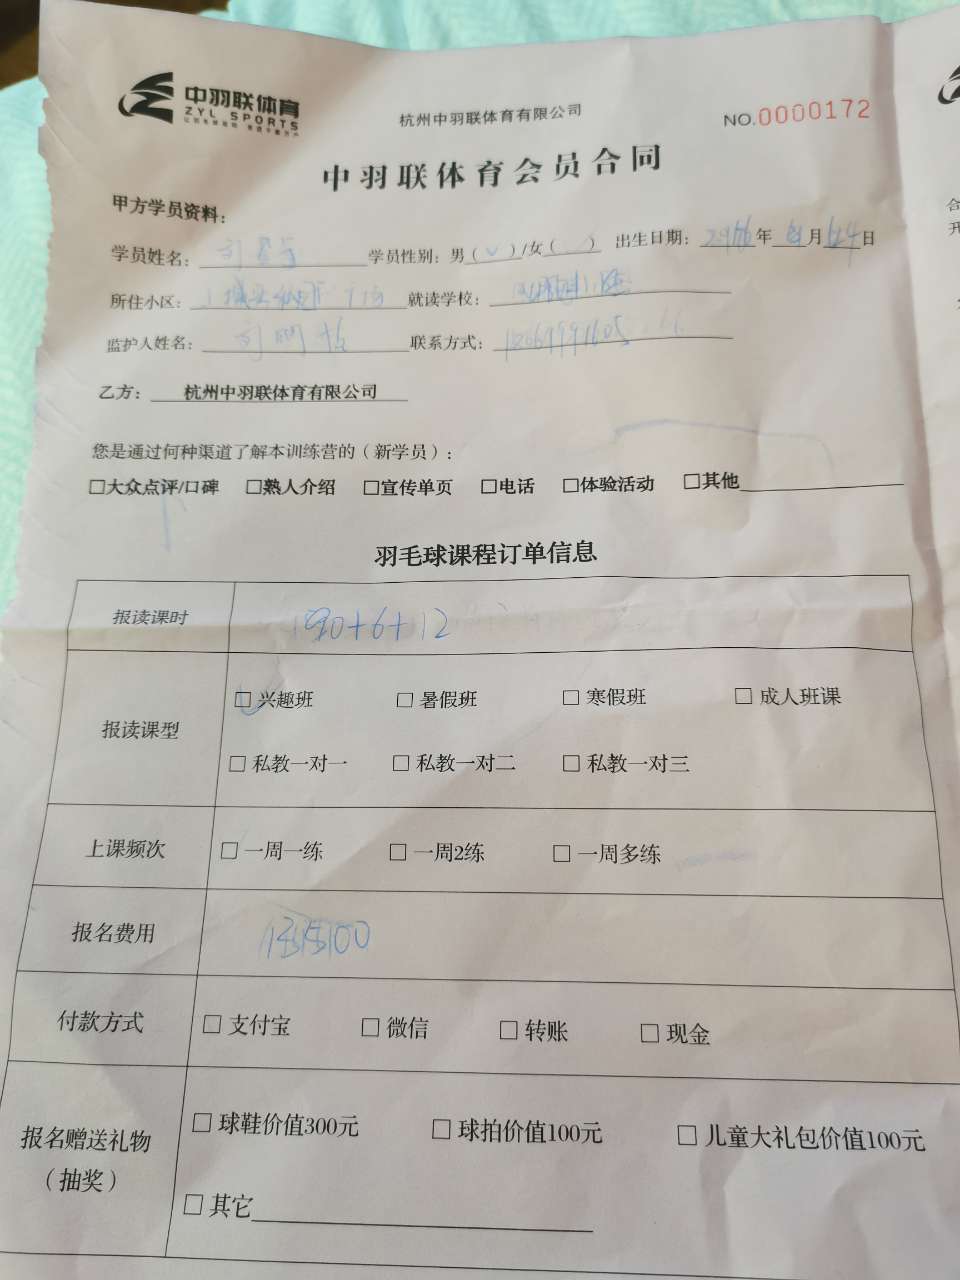 中羽联体育
ZYL SPORTS
杭州中羽联体育有限公司
NO.0000172
中羽联体育会员合同
甲方学员资料：
学员姓名： 学员性别：男（√）/女（ ） 出生日期： 年 月 日
所住小区： 就读学校：
监护人姓名： 联系方式：
乙方： 杭州中羽联体育有限公司
您是通过何种渠道了解本训练营的（新学员）：
□大众点评/口碑 □熟人介绍 □宣传单页 □电话 □体验活动 □其他
羽毛球课程订单信息
报读课时 190+6+12
报读课型
□ 兴趣班 □ 暑假班 □ 寒假班 □ 成人班课
□ 私教一对一 □ 私教一对二 □ 私教一对三
上课频次 □ 一周一练 □ 一周2练 □ 一周多练
报名费用
付款方式 □ 支付宝 □ 微信 □ 转账 □ 现金
报名赠送礼物
（抽奖）
□ 球鞋价值300元 □ 球拍价值100元 □ 儿童大礼包价值100元
□ 其它